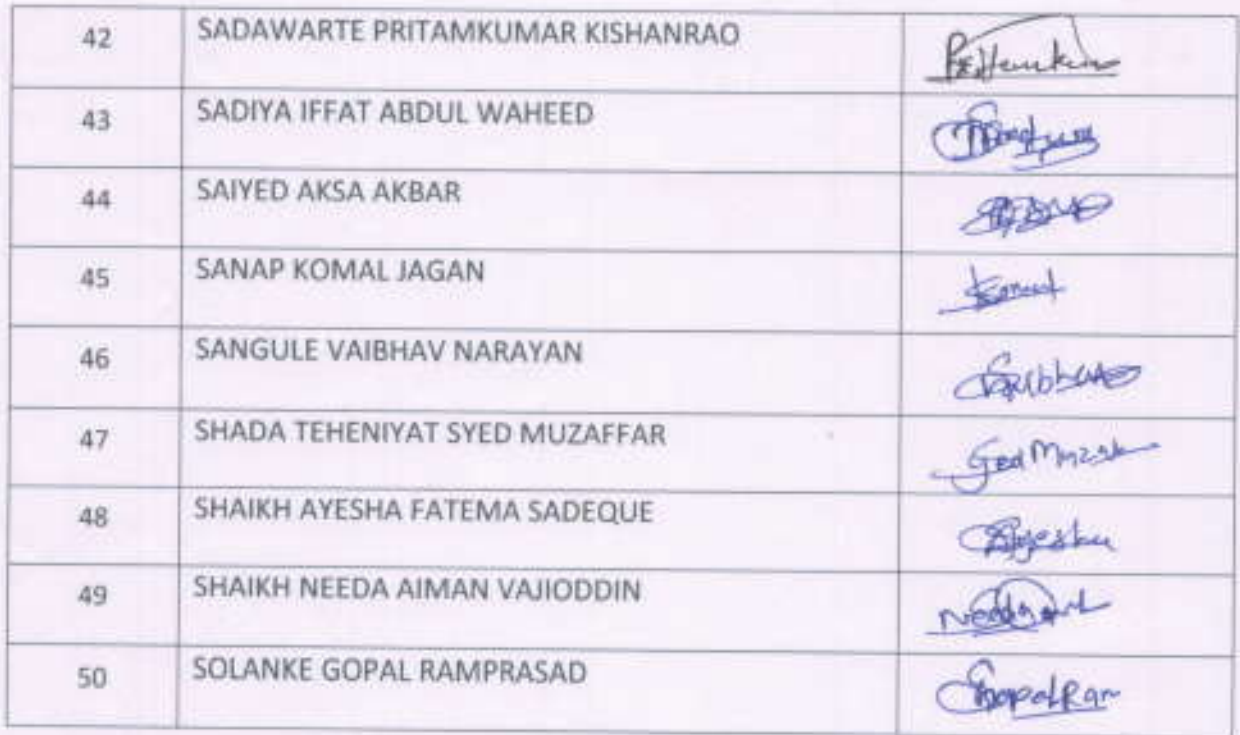 42 SADAWARTE PRITAMKUMAR KISHANRAO
43 SADIYA IFFAT ABDUL WAHEED
44 SAIYED AKSA AKBAR
45 SANAP KOMAL JAGAN
46 SANGULE VAIBHAV NARAYAN
47 SHADA TEHENIYAT SYED MUZAFFAR
48 SHAIKH AYESHA FATEMA SADEQUE
49 SHAIKH NEEDA AIMAN VAJIODDIN
50 SOLANKE GOPAL RAMPRASAD